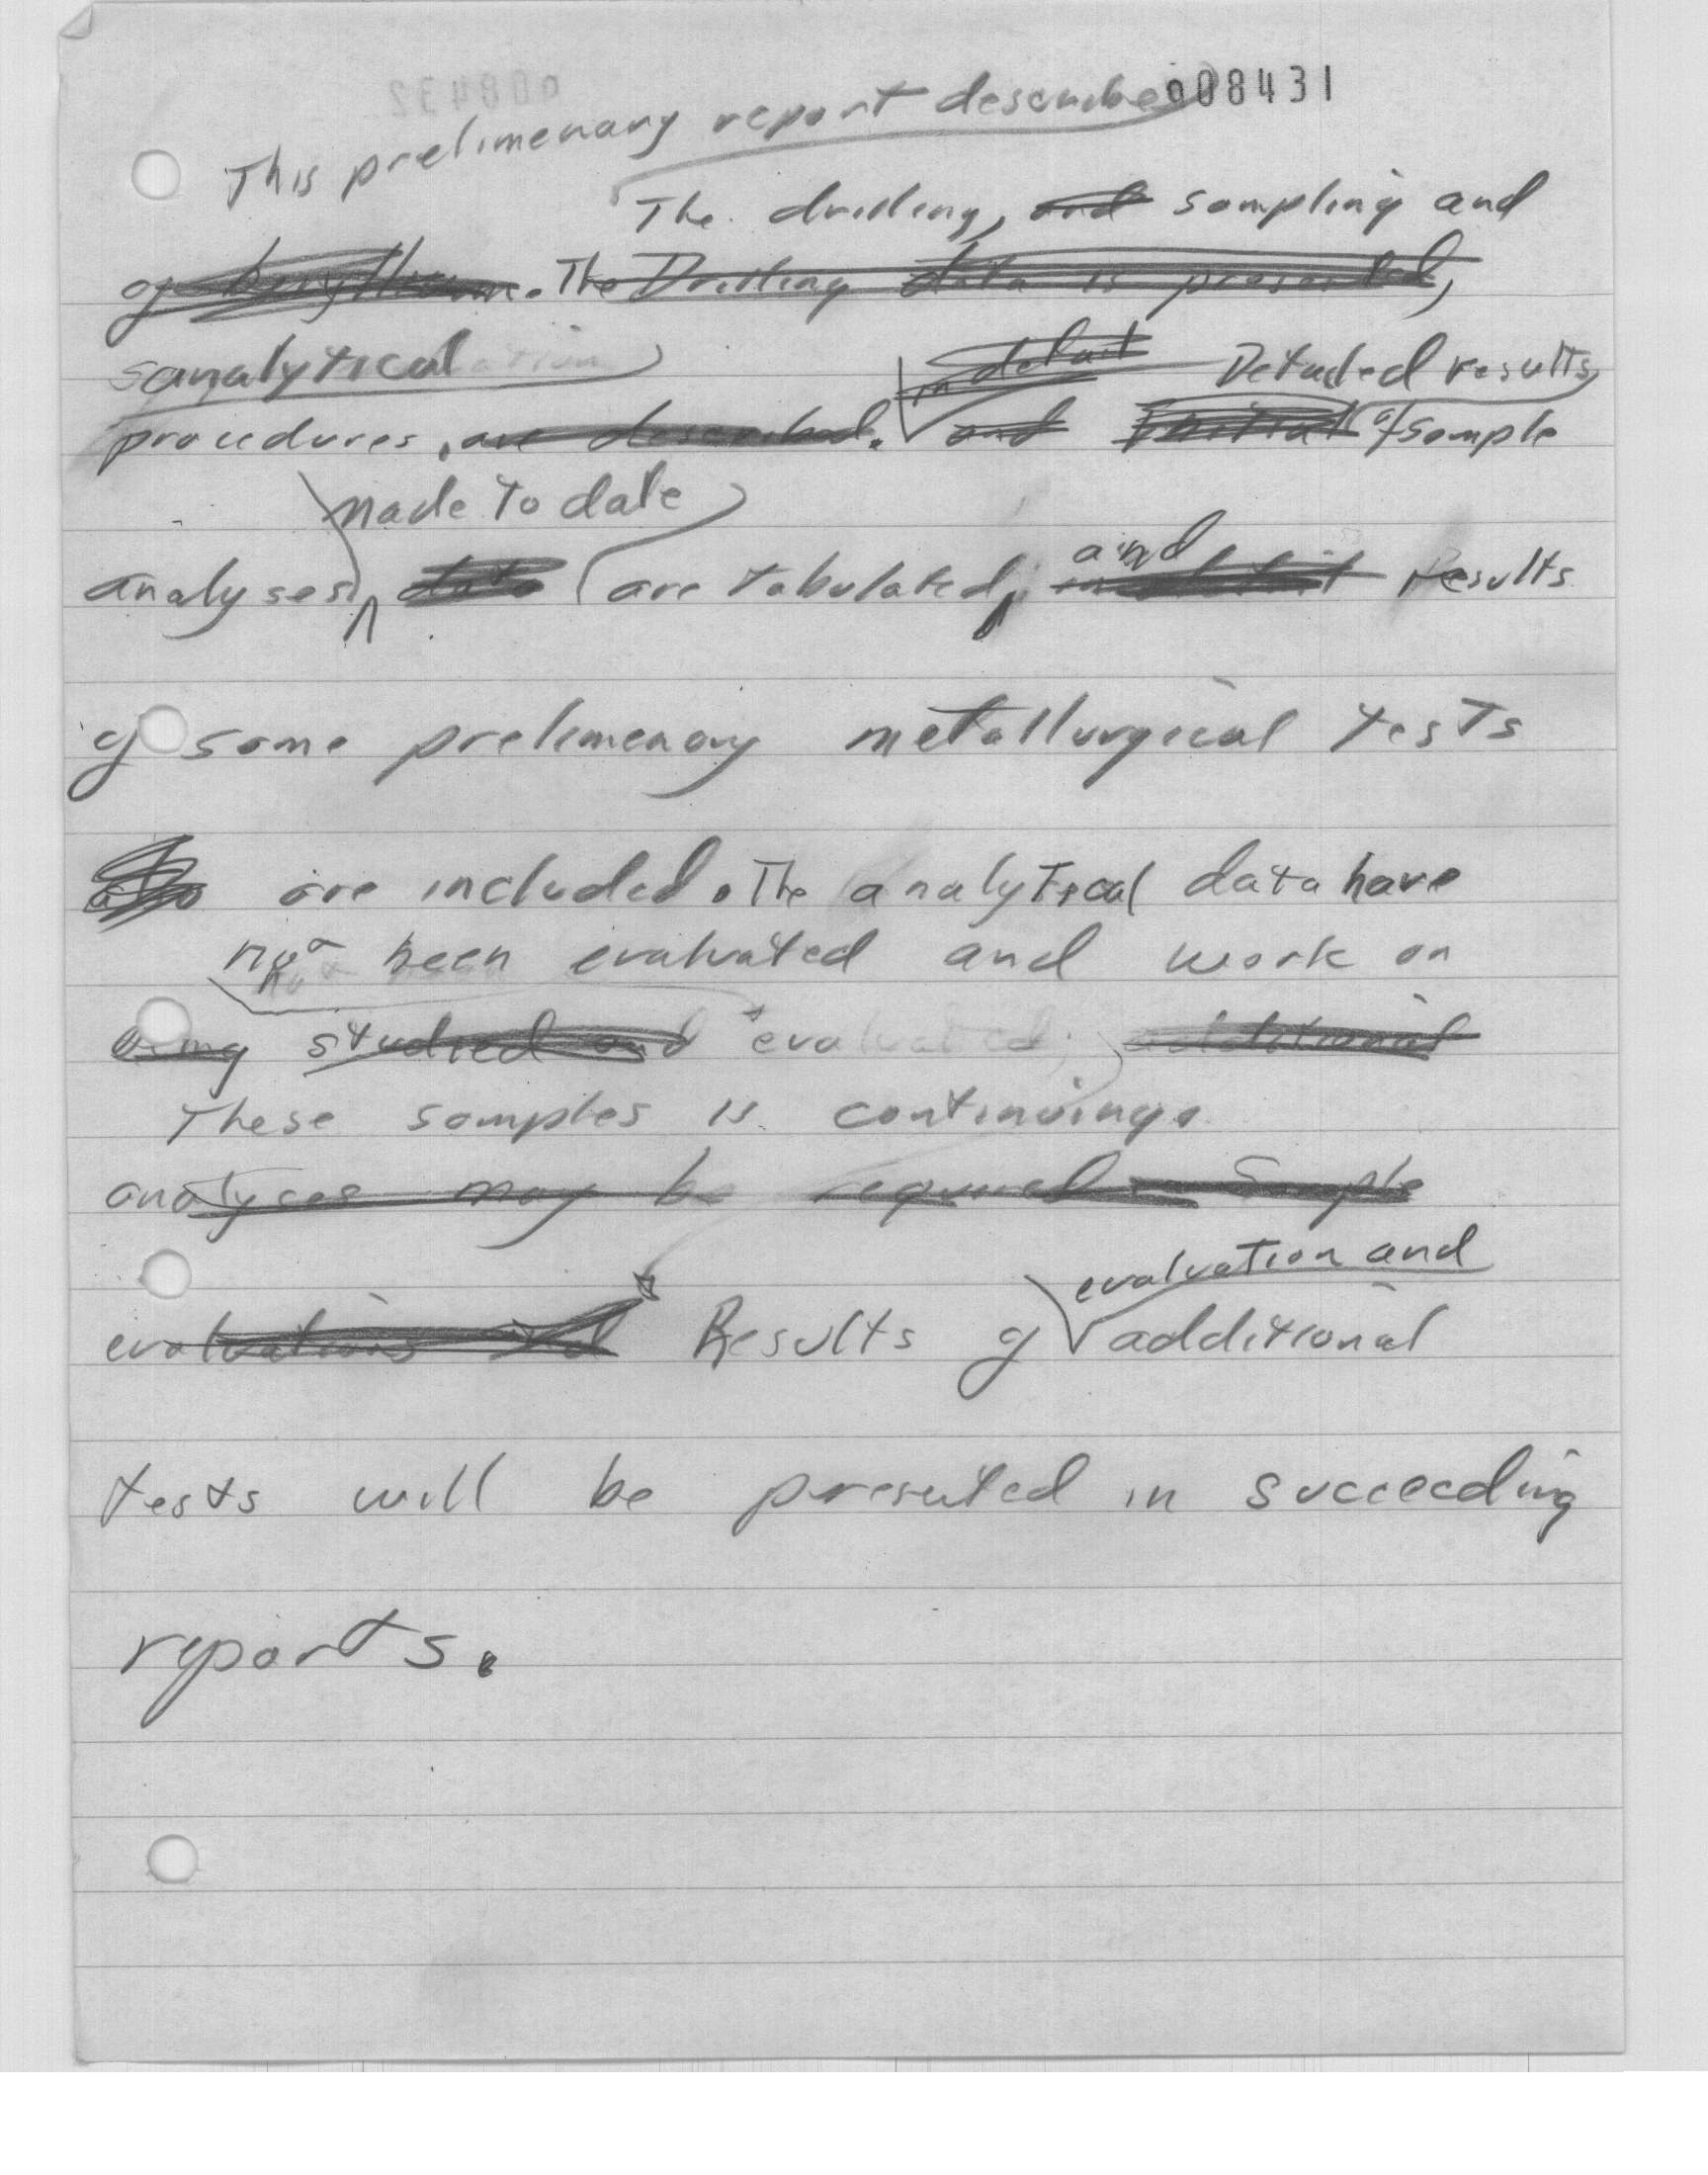 008431
This prelimenary report describes
The drilling, and sampling and
of beryllium. The Drilling data is presented,
analytical
in detail Detailed results
procedures, are described. and Initial of sample
made to date
and
analyses, data are tabulated, in detail Results
of some prelimenary metallurgical tests
also are included. The analytical data have
not been evaluated and work on
being studied and evaluated; additional
These samples is continuing.
analyses may be required Sample
evaluation and
evaluations Results of additional
tests will be presented in succeeding
reports.